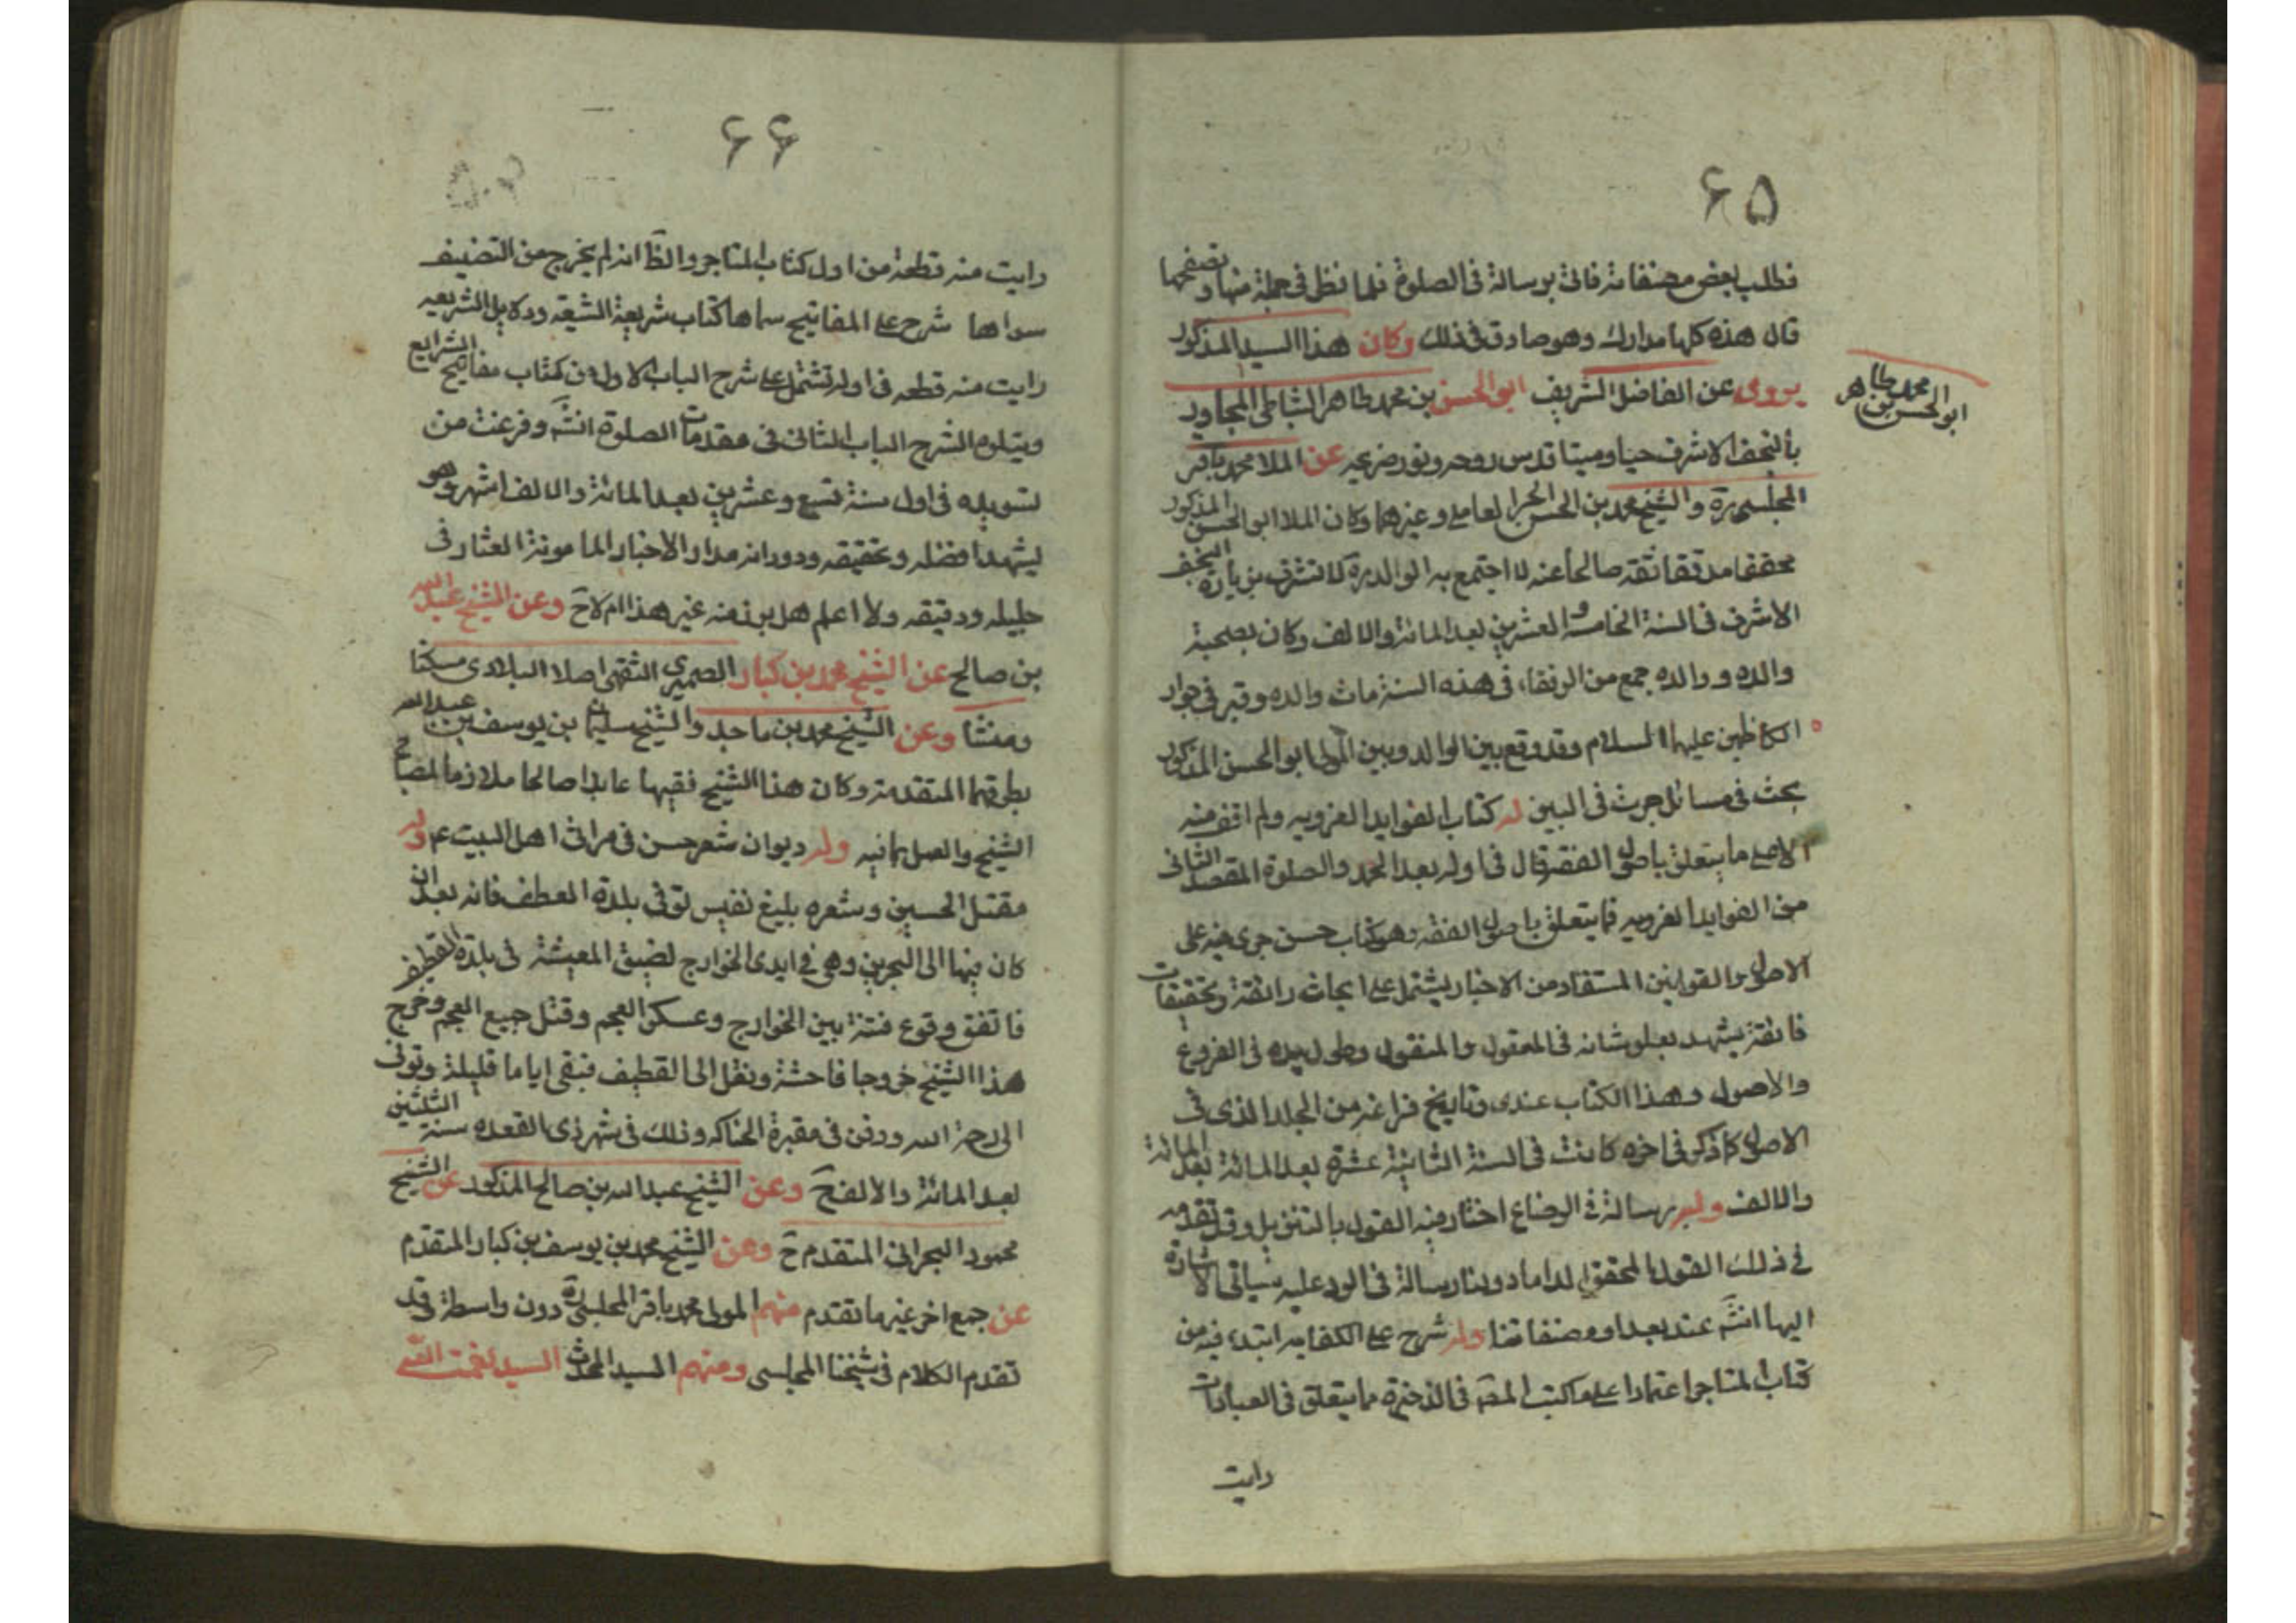 ۶۵
فطلب بعض مصنفاته فاتى برسالة فى الصلوة فلما نظر فى جملة منها وتصفحها
قال هذه كلها مدارك وهو صادق فى ذلك وكان هذا السيد المذكور
يروى عن الفاضل الشريف ابو الحسن بن محمد طاهر الشاطى المجاور
بالنجف الاشرف حيا وميتا قدس روحه ونور ضريحه عن الملا محمد باقر
المجلسى ره والشيخ محمد بن الحسن الحر العاملى وغيرهما وكان الملا ابو الحسن المذكور
محققا مدققا ثقه صالحا عدلا اجتمع به الوالد ره لا تشرف بزيارة النجف
الاشرف فى السنة الخامسة والعشرين بعد المائة والالف وكان بصحبة
والده و والده جمع من الرفقاء فى هذه السنة مات والده وقبر فى جوار
الكاظمين عليهما السلام وقد وقع بين الوالد وبين المولى ابو الحسن المذكور
بحث فى مسائل جرت فى البين له كتاب الفوايد الغرويه ولم اقف منه
الا على ما يتعلق باصول الفقه قال فى اوله بعد الحمد والصلوة المقصد الثانى
من الفوايد الغرويه فما يتعلق باصول الفقه وهو كتاب حسن جرى فيه على
الاصول والقوانين المستفاد من الاخبار يشتمل على ابحاث رائقة وتحقيقات
فائقة يشهد بعلو شانه فى المعقول والمنقول وطول يده فى الفروع
والاصول وهذا الكتاب عندى وتاريخ فراغه من المجلد الذى فى
الاصول كما ذكر فى اخره كانت فى السنة الثانية عشرة بعد المائة بعد المائة
والالف وله رسالة فى الرضاع اختار فيه القول بالتنزيل وقد تقدمه
فى ذلك القول المحقق الداماد ولنا رسالة فى الرد عليه سياتى الاشارة
اليها انشَ عند تعداد مصنفاتنا وله شرح على الكفايه ابتدء فيه من
كتاب المتاجر اعتمادا على ما كتب المصَ فى الذخيرة مما يتعلق فى العبادات
رايت
محمد طاهر
ابو الحسن بن
۶۶
۵۰۲
رايت منه قطعة من اول كتاب المتاجر والظَ انه لم يخرج من التصنيف
سواها شرح على المفاتيح سماها كتاب شريعة الشيعة ودلايل الشريعه
رايت منه قطعه فى اوله تشتمل على شرح الباب الاول من كتاب مفاتيح الشرايع
ويتلوه الشرح الباب الثانى فى مقدمات الصلوة انشَ وفرغت من
تسويده فى اول سنة تسع وعشرين بعد المائة والالف اشهر وهو
يشهد افضله وتحقيقه ودورانه مدار الاخبار المامونة العثار فى
جليله ودقيقه ولا اعلم هل برز منه غير هذا ام لا حَ وعن الشيخ عبد الله
بن صالح عن الشيخ محمد بن كبار الصميرى النقهى اصلا البلادى مسكنا
ومنشا وعن الشيخ محمد بن ماجد والشيخ سليمان بن يوسف بن عبد الله
بطرقهما المتقدمة وكان هذا الشيخ فقيها عابدا صالحا ملازما لمصباح
الشيخ والعمل بما فيه وله ديوان شعر حسن فى مراثى اهل البيت ع وله
مقتل الحسين وشعره بليغ نفيس توفى بلدة القطف فانه بعد ان
كان فيها الى البحرين وهى فى ايدى الخوارج لضيق المعيشة فى بلدة القطيف
فاتفق وقوع فتنة بين الخوارج وعسكر العجم وقتل جميع العجم وخرج
هذا الشيخ خروجا فاحشة ونقل الى القطيف فبقى اياما قليلة وتوفى
الى رحمة الله ودفن فى مقبرة الحناكه وذلك فى شهر ذى القعده سنة الثلثين
بعد المائة والالف حَ وعن الشيخ عبد الله بن صالح المذكور عن الشيخ
محمود البحرانى المتقدم حَ وعن الشيخ محمد بن يوسف بن كبار المتقدم
عن جمع اخر غير ما تقدم منهم المولى محمد باقر المجلسى ره دون واسطة وقد
تقدم الكلام فى شيخنا المجلسى ومنهم السيد المحدث السيد نعمت الله